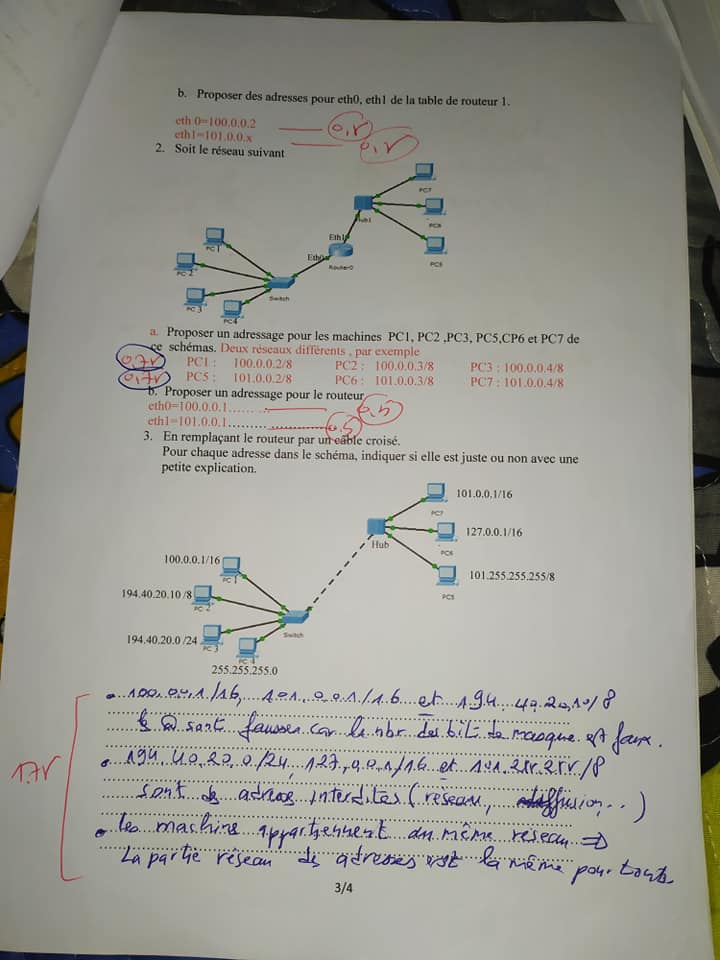 b. Proposer des adresses pour eth0, eth1 de la table de routeur 1.
eth 0=100.0.0.2
eth1=101.0.0.x
2. Soit le réseau suivant
PC7
Hub1
PC6
PC 1
Eth1
PC5
Eth0
Router0
PC 2
Switch
PC 3
PC4
a. Proposer un adressage pour les machines PC1, PC2 ,PC3, PC5,CP6 et PC7 de
ce schémas. Deux réseaux différents , par exemple
PC1 : 100.0.0.2/8 PC2 : 100.0.0.3/8 PC3 : 100.0.0.4/8
PC5 : 101.0.0.2/8 PC6 : 101.0.0.3/8 PC7 : 101.0.0.4/8
b. Proposer un adressage pour le routeur
eth0=100.0.0.1
0,5
eth1=101.0.0.1
0,5
3. En remplaçant le routeur par un câble croisé.
Pour chaque adresse dans le schéma, indiquer si elle est juste ou non avec une
petite explication.
101.0.0.1/16
PC7
127.0.0.1/16
Hub
PC6
100.0.0.1/16
101.255.255.255/8
PC 1
PC5
194.40.20.10 /8
PC 2
Switch
194.40.20.0 /24
PC 3
PC 4
255.255.255.0
100.0.0.1/16, 101.0.0.1/16 et 194.40.20.10/8
@ sont fausses car le nbr des bits de masque est faux.
194.40.20.0/24, 127.0.0.1/16 et /8
sont des adresses interdites (réseau, diffusion...)
les machine appartiennent au même réseau ⇒
La partie réseau des adresses est la même pour toute
3/4